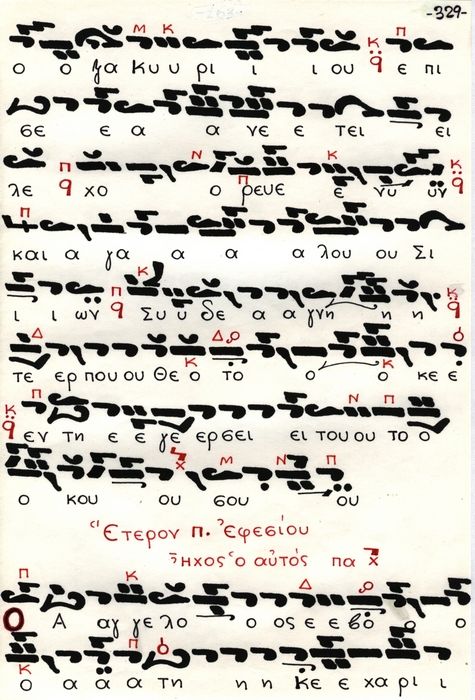 -329-
ο ο γα Κυ υ ρι ι ι ου ε πι
σε ε α α γε ε τει ει
λε χο ο ρευε ε νυ υν
και α γα α α α λου ου Σι
ι ι ων Συ υ δε α α γνη η η
τε ερ που ου Θε ο το ο ο κε ε
εν τη ε ε γε ερσει ει του ου το ο
ο κου ου σου ου
Έτερον Π. Ἐφεσίου
Ἦχος ὁ αὐτός πα
Ο Α αγ γε λο ο ος ε ε βό ο ο
ο α α α τη η η κε ε χα ρι ι